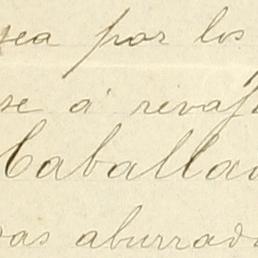 sea por los
se á revaj
Caballa
as aburrad